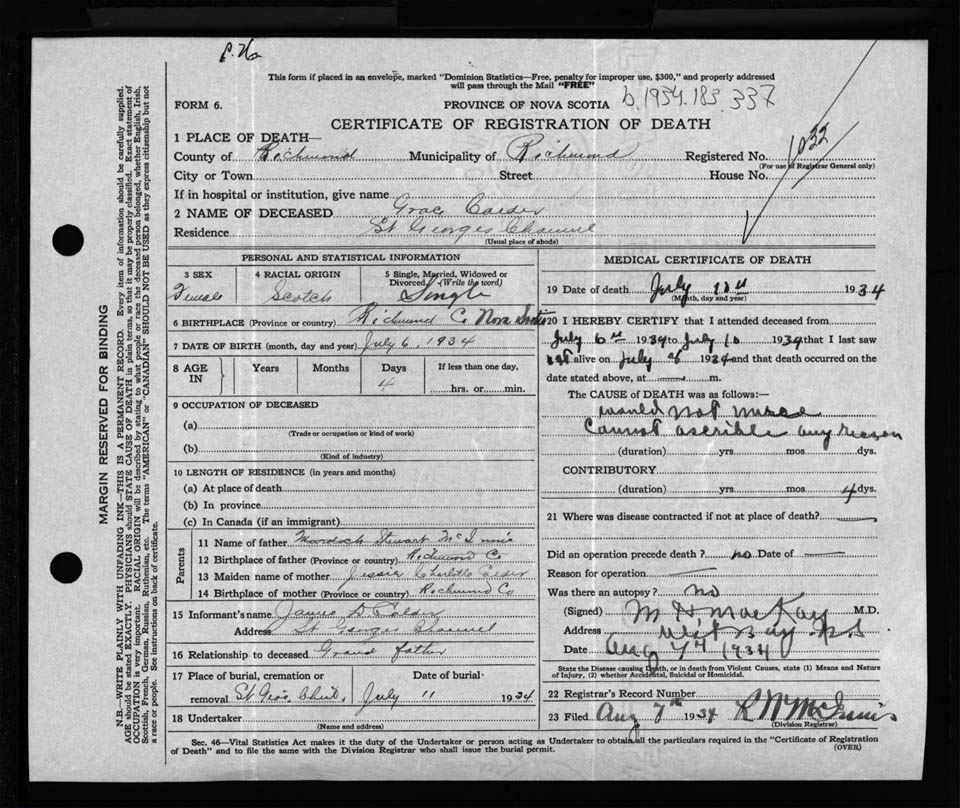 This form if placed in an envelope, marked "Dominion Statistics—Free, penalty for improper use, $300," and properly addressed
will pass through the Mail "FREE"
b. 1934.183.337
FORM 6.
PROVINCE OF NOVA SCOTIA
CERTIFICATE OF REGISTRATION OF DEATH
1032
1 PLACE OF DEATH—
County of Richmond Municipality of Richmond Registered No.
(For use of Registrar General only)
City or Town Street House No.
If in hospital or institution, give name
2 NAME OF DECEASED Grace Calder
Residence St Georges Channel
(Usual place of abode)
PERSONAL AND STATISTICAL INFORMATION
3 SEX
Female
4 RACIAL ORIGIN
Scotch
5 Single, Married, Widowed or
Divorced (Write the word)
Single
6 BIRTHPLACE (Province or country) Richmond Co Nova Scotia
7 DATE OF BIRTH (month, day and year) July 6, 1934
8 AGE
IN
Years
Months
Days
4
If less than one day,
hrs. or min.
9 OCCUPATION OF DECEASED
(a)
(Trade or occupation or kind of work)
(b)
(Kind of industry)
10 LENGTH OF RESIDENCE (in years and months)
(a) At place of death
(b) In province
(c) In Canada (if an immigrant)
Parents
11 Name of father Murdoch Stewart McInnis
12 Birthplace of father (Province or country) Richmond Co
13 Maiden name of mother Jessie Charlotte Calder
14 Birthplace of mother (Province or country) Richmond Co
15 Informant's name James D Calder
Address St Georges Channel
16 Relationship to deceased Grand father
17 Place of burial, cremation or Date of burial
removal St Geo's Chnl. July 11 1934
18 Undertaker
(Name and address)
MEDICAL CERTIFICATE OF DEATH
19 Date of death July 1934
(Month, day and year)
20 I HEREBY CERTIFY that I attended deceased from
July 6th 1934 to July 10 1934 that I last saw
alive on July 8 1934 and that death occurred on
date stated above, at m.
The CAUSE OF DEATH was as follows:
would not nurse
cannot ascribe any reason
(duration) yrs. mos. dys.
CONTRIBUTORY
(duration) yrs. mos. 4 dys.
21 Where was disease contracted if not at place of death?
Did an operation precede death? no Date of
Reason for operation
Was there an autopsy? no
(Signed) M H MacKay M.D.
Address West Bay N.S
Date Aug 7th 1934
State the Disease causing Death, or in death from Violent Causes, state (1) Means and Nature
of Injury, (2) whether Accidental, Suicidal or Homicidal.
22 Registrar's Record Number
23 Filed Aug 7th 1934 McInnis
(Division Registrar)
Sec. 46—Vital Statistics Act makes it the duty of the Undertaker or person acting as Undertaker to obtain all the particulars required in the "Certificate of Registration
of Death" and to file the same with the Division Registrar who shall issue the burial permit.
(OVER)
MARGIN RESERVED FOR BINDING
N.B.—WRITE PLAINLY WITH UNFADING INK—THIS IS A PERMANENT RECORD. Every item of information should be carefully supplied.
AGE should be stated EXACTLY. PHYSICIANS should STATE CAUSE OF DEATH in plain terms, so that it may be properly classified. Exact statement of
OCCUPATION is very important. RACIAL ORIGIN will be described by stating to what people or race the deceased person belonged, whether English, Irish,
Scottish, French, German, Russian, Ruthenian, etc. The terms "AMERICAN" or "CANADIAN" SHOULD NOT BE USED as they express citizenship but not
a race or people. See instructions on back of certificate.